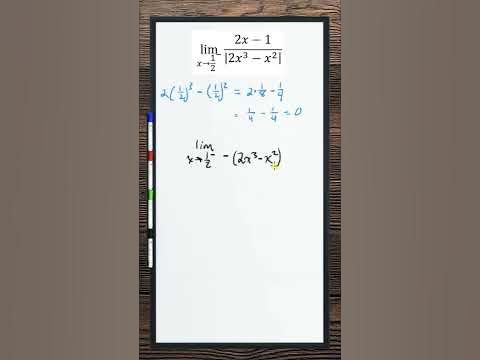 lim x→1/2⁻ (2x − 1)/|2x³ − x²|
2(1/2)³ − (1/2)² = 2·1/8 − 1/4
= 1/4 − 1/4 = 0
lim x→1/2⁻ −(2x³−x²)